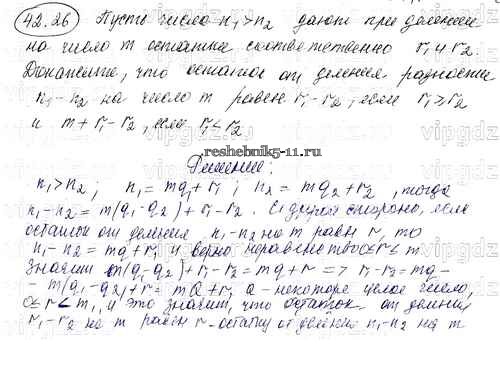 42.26 Пусть числа n₁>n₂ дают при делении
на число m остатки соответственно r₁ и r₂.
Докажите, что остаток от деления разности
n₁-n₂ на число m равен r₁-r₂, если r₁⩾r₂
и m+r₁-r₂, если r₁<r₂
reshebnik5-11.ru
Решение:
n₁>n₂; n₁=mq₁+r₁; n₂=mq₂+r₂, тогда
n₁-n₂=m(q₁-q₂)+r₁-r₂. С другой стороны, если
остаток от деления n₁-n₂ на m равен r, то
n₁-n₂=mq+r, и верно неравенство 0≤r≤m
Значит m(q₁-q₂)+r₁-r₂=mq+r=> r₁-r₂=mq-
-m(q₁-q₂)+r=mQ+r, Q-некоторое целое число,
0≤r<m, и это значит, что остаток от деления
r₁-r₂ на m равен r-остатку от деления n₁-n₂ на m